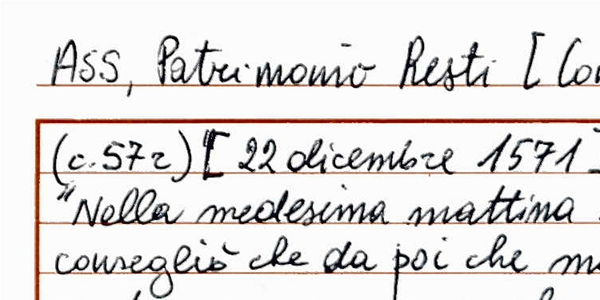 ASS, Patrimonio Resti [
(c. 57r) [ 22 dicembre 1571]
"Nella medesima mattina
consegliò che da poi che